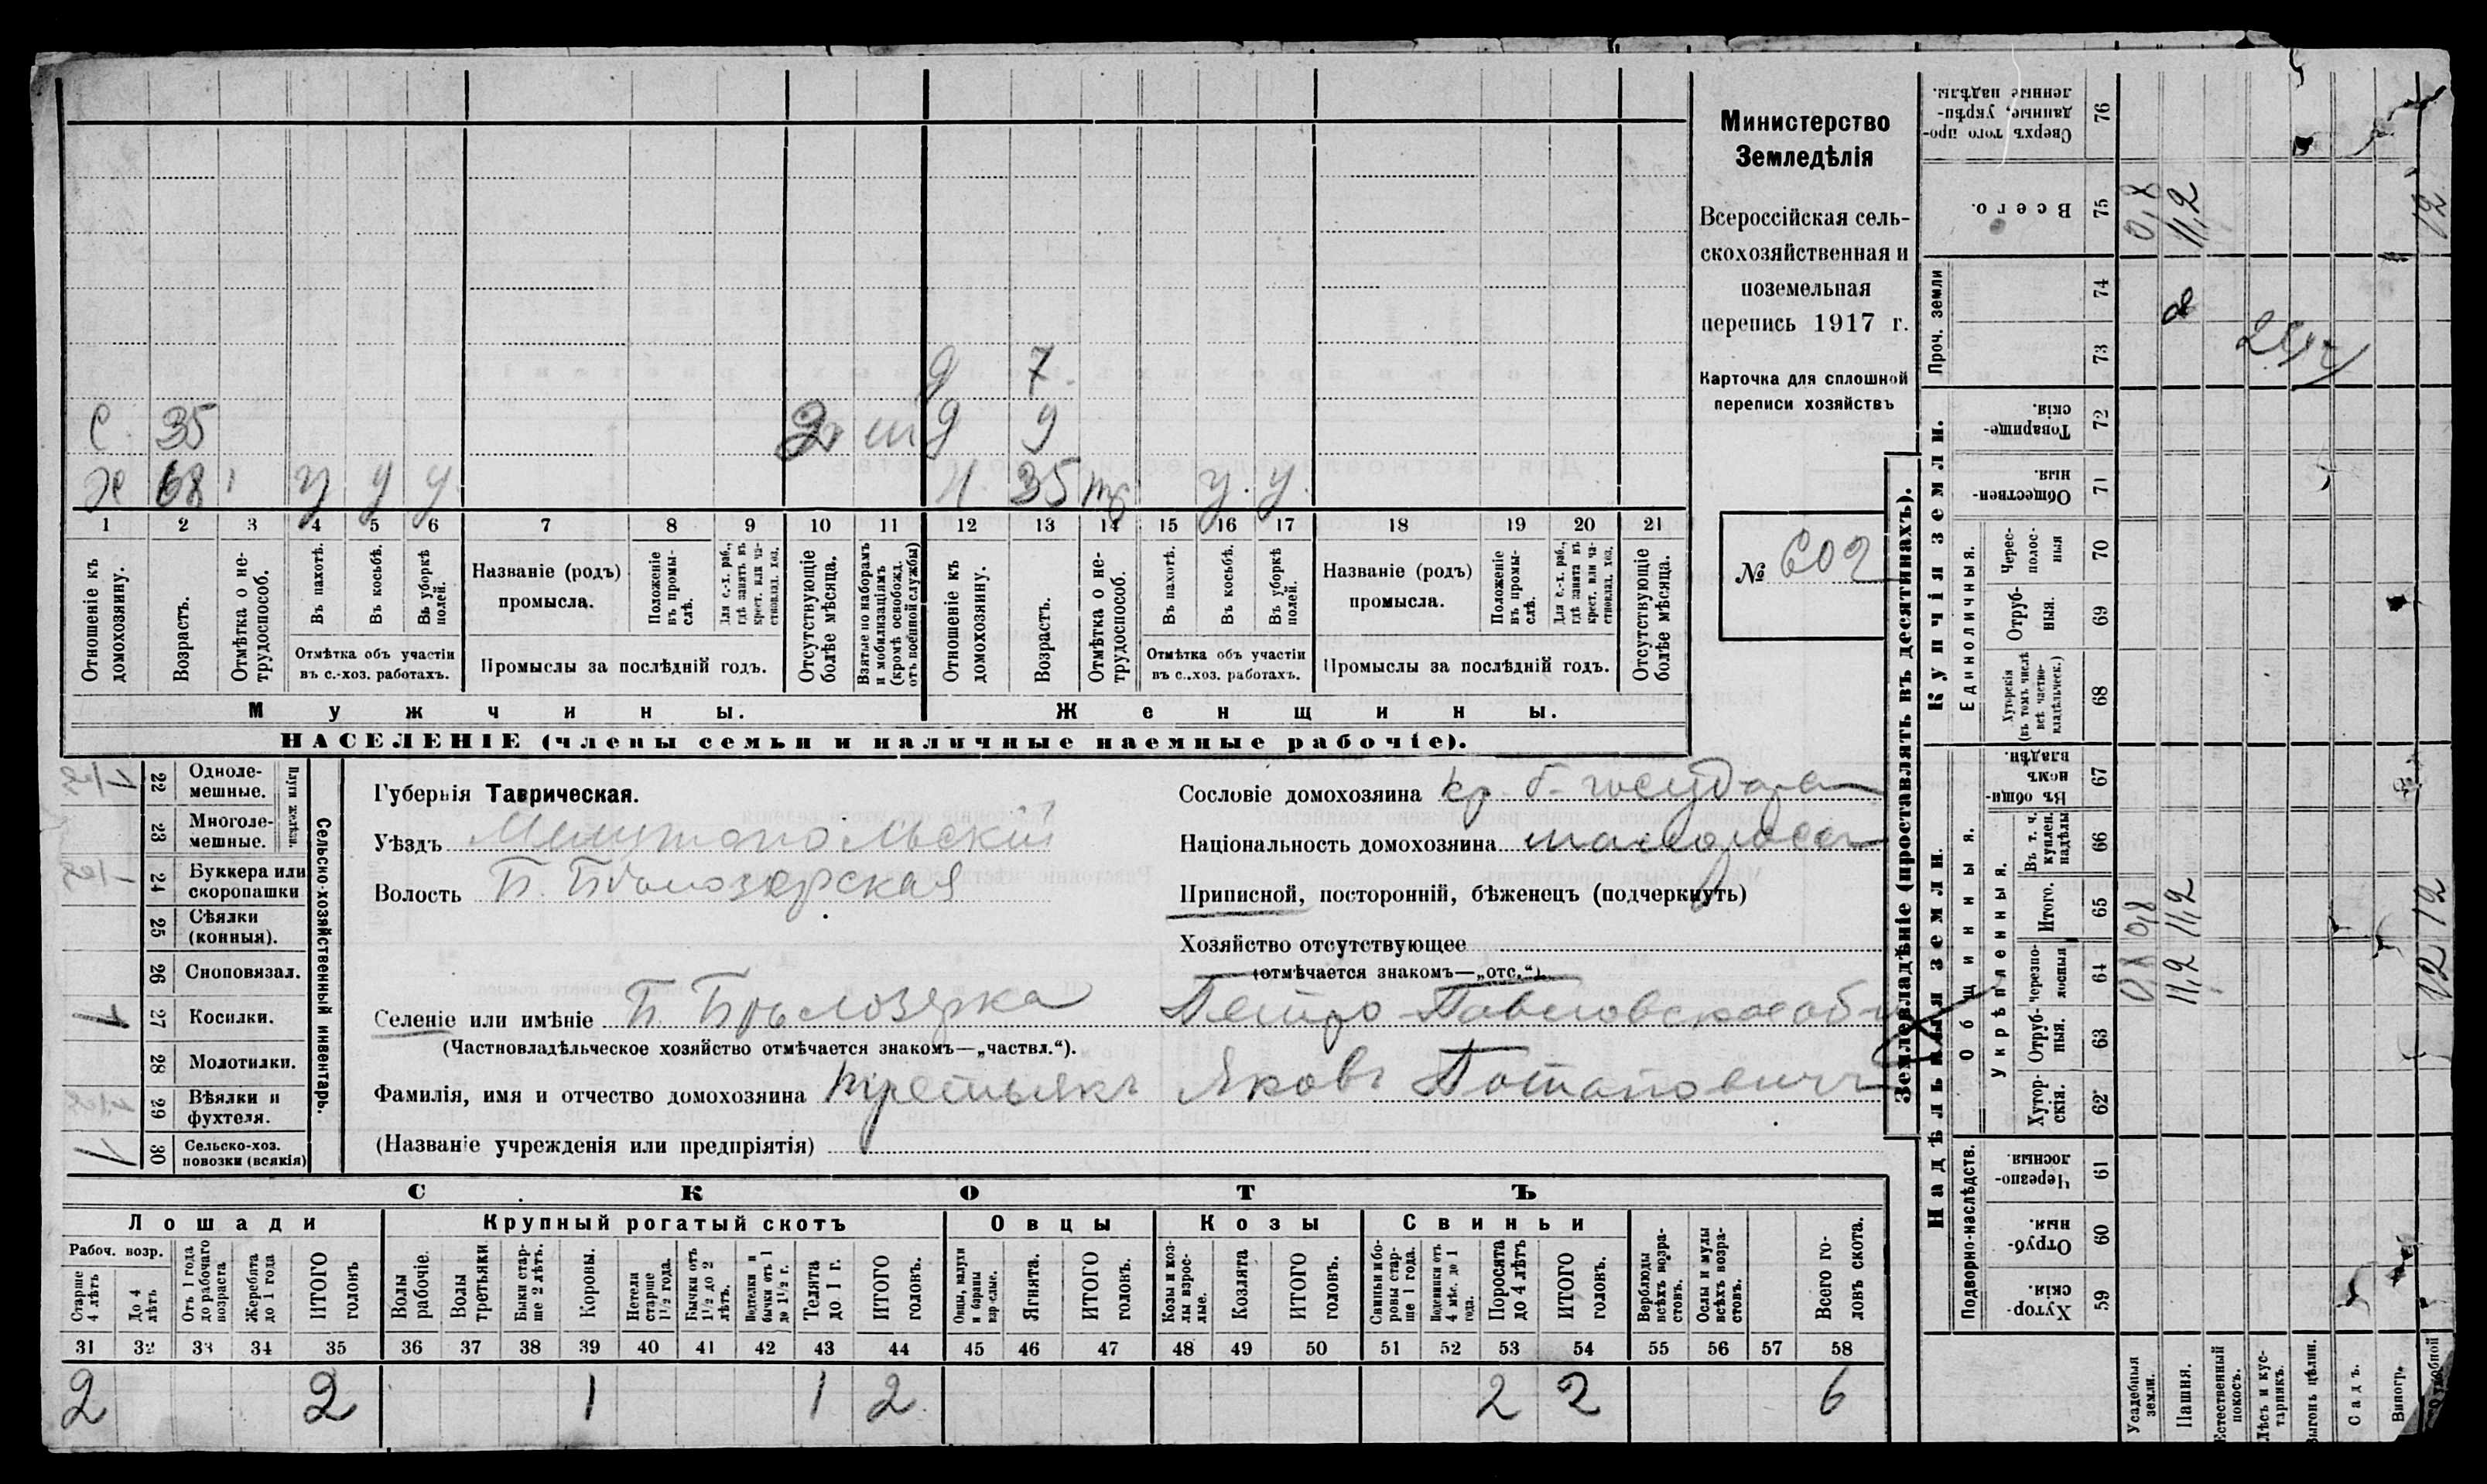 Министерство
Земледѣлія
Всероссійская сель-
скохозяйственная и
поземельная
перепись 1917 г.
Карточка для сплошной
переписи хозяйствъ
№ 602
д 7
с 35 2 д 9
х 68 у у у ж 35 у у
1 2 3 4 5 6 7 8 9 10 11 12 13 14 15 16 17 18 19 20 21
Отношеніе къ домохозяину.
Возрастъ.
Отмѣтка о не-трудоспособ.
Въ пахотѣ.
Въ косьбѣ.
Въ уборкѣ полей.
Отмѣтка объ участіи
въ с.-хоз. работахъ.
Названіе (родъ)
промысла.
Положеніе въ промы-слѣ.
Для с.-х. раб., гдѣ занятъ въ крест. или ча-стновлад. хоз.
Промыслы за послѣдній годъ.
Отсутствующіе болѣе мѣсяца.
Взятые по наборамъ и мобилизаціямъ (кромѣ освобожд. отъ военной службы)
Отношеніе къ домохозяину.
Возрастъ.
Отмѣтка о не-трудоспособ.
Въ пахотѣ.
Въ косьбѣ.
Въ уборкѣ полей.
Отмѣтка объ участіи
въ с.-хоз. работахъ.
Названіе (родъ)
промысла.
Положеніе въ промы-слѣ.
Для с.-х. раб., гдѣ занята въ крест. или ча-стновлад. хоз.
Промыслы за послѣдній годъ.
Отсутствующіе болѣе мѣсяца.
Мужчины. Женщины.
НАСЕЛЕНІЕ (члены семьи и наличные наемные рабочіе).
Сельско-хозяйственный инвентарь.
Плуги желѣзн.
22 Одноле-мешные.
23 Многоле-мешные.
24 Буккера или скоропашки
25 Сѣялки (конныя).
26 Сноповязал.
1 27 Косилки.
28 Молотилки.
29 Вѣялки и фухтеля.
1 30 Сельско-хоз. повозки (всякія)
Губернія Таврическая.
Уѣздъ Мелитопольскій
Волость Б. Бѣлозерская
Селеніе или имѣніе Б. Бѣлозерка
(Частновладѣльческое хозяйство отмѣчается знакомъ—„частвл.“).
Фамилія, имя и отчество домохозяина Третьякъ Яковъ Потаповичъ
(Названіе учрежденія или предпріятія)
Сословіе домохозяина кр. б. государ
Національность домохозяина малоросс
Приписной, посторонній, бѣженецъ (подчеркнуть)
Хозяйство отсутствующее
(отмѣчается знакомъ—„отс.“).
Петро-Павловское общ
СКОТЪ
Лошади Крупный рогатый скотъ Овцы Козы Свиньи
Рабоч. возр.
Старше 4 лѣтъ
До 4 лѣтъ
Отъ 1 года до рабочаго возраста
Жеребята до 1 года
ИТОГО головъ
Волы рабочіе.
Волы третьяки
Быки стар-ше 2 лѣтъ.
Коровы.
Нетели старше 1½ года.
Бычки отъ 1½ до 2 лѣтъ.
Подтелки и бычки отъ 1 до 1½ г.
Телята до 1 г.
ИТОГО головъ.
Овцы, валухи и бараны взрослые.
Ягнята.
ИТОГО головъ.
Козы и коз-лы взрос-лые.
Козлята
ИТОГО головъ.
Свиньи и бо-ровы стар-ше 1 года.
Подсвинки отъ 4 мѣс. до 1 года.
Поросята до 4 лѣтъ
ИТОГО головъ.
Верблюды всѣхъ возра-стовъ.
Ослы и мулы всѣхъ возра-стовъ.
Всего го-ловъ скота.
31 32 33 34 35 36 37 38 39 40 41 42 43 44 45 46 47 48 49 50 51 52 53 54 55 56 57 58
2 2 1 1 2 2 2 6
Землевладѣніе (проставлять въ десятинахъ).
Надѣльныя земли.
Купчія земли.
Проч. земли
Подворно-наслѣдств.
Общинныя.
Укрѣпленныя.
Единоличныя.
59 Хутор-скія.
60 Отруб-ныя.
61 Черезпо-лосныя.
62 Хутор-скія.
63 Отруб-ныя.
64 Черезпо-лосныя 0,8 11,2 12
65 Итого. 0,8 11,2 12
66 Въ т. ч. куплен. надѣлы
67 Въ общин-номъ владѣн.
68 Хуторскія (въ томъ числѣ всѣ частно-владѣльческ.)
69 Отруб-ныя.
70 Черес-полос-ныя
71 Обществен-ныя.
72 Товарище-скія.
73
74 8
75 Всего. 0,8 11,2 12
76 Сверхъ того про-данные, укрѣп-ленные надѣлы.
Усадебныя земли.
Пашня.
Естественный покосъ.
Лѣсъ и кус-тарникъ.
Выгонъ цѣлин.
Садъ.
Виногр.